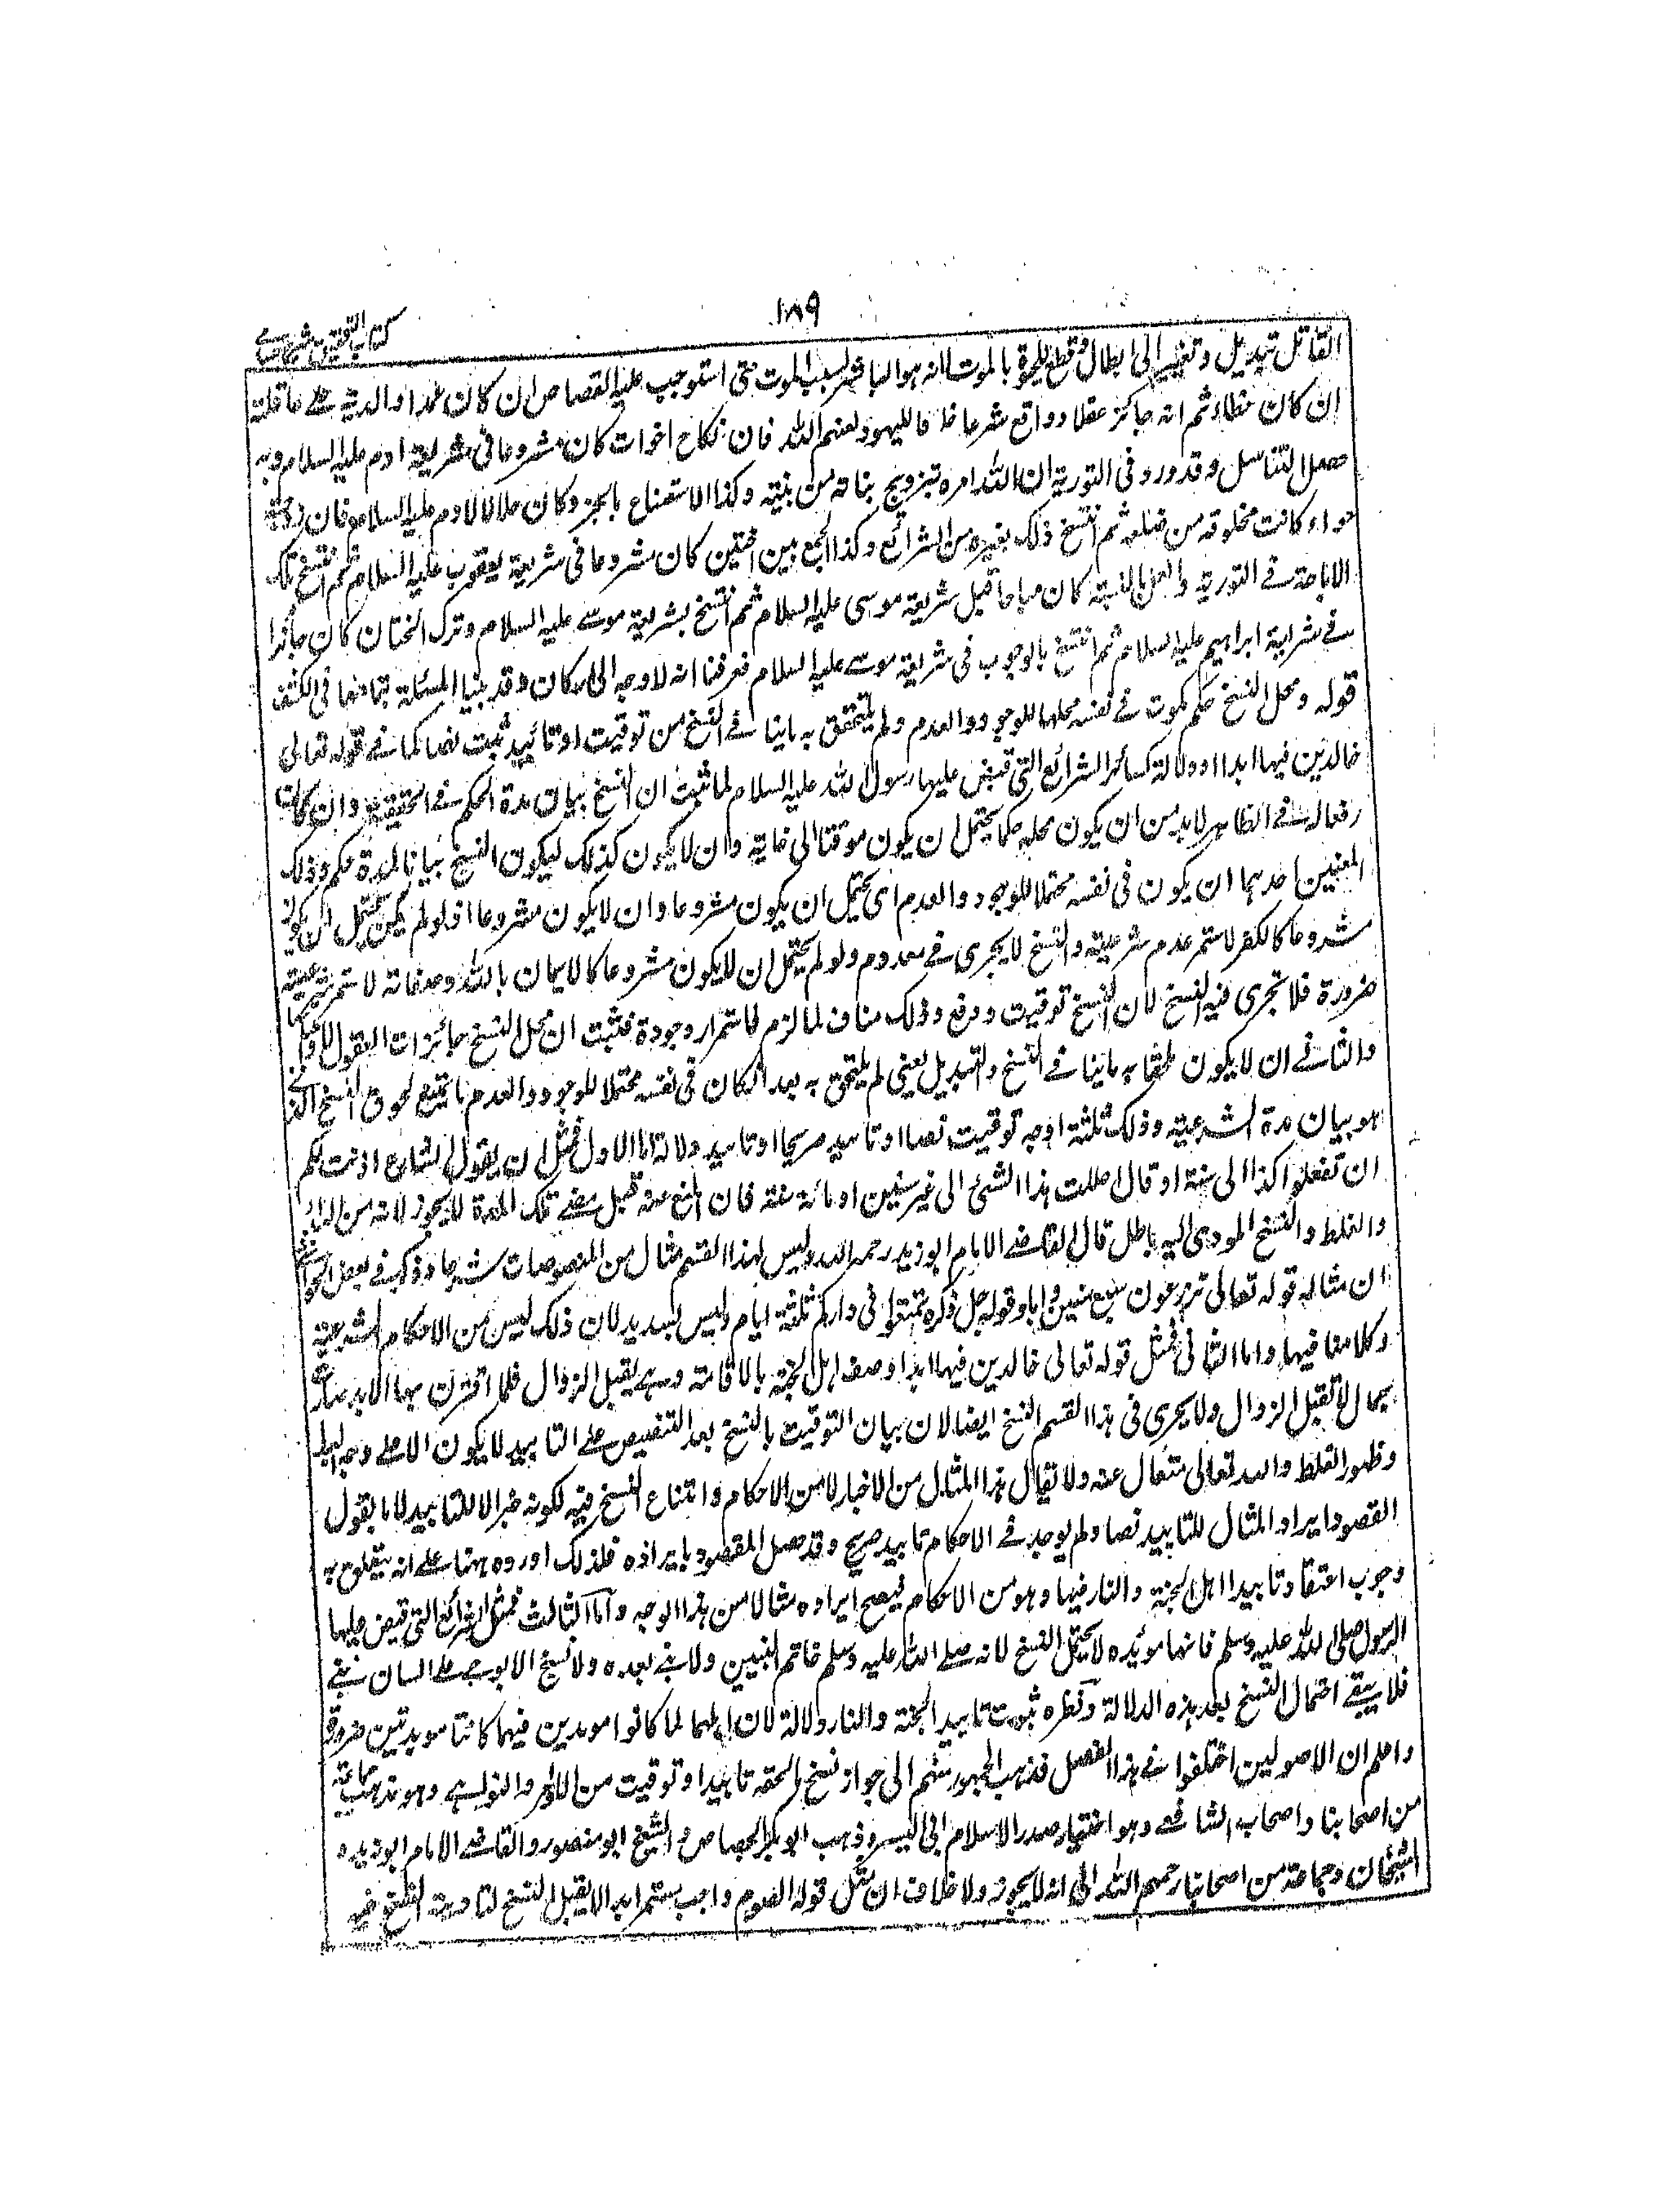 ١٨٩
كتاب التحقيق شرح حسامى
القاتل تبديل وتغيير الى ابطال وقطع للحيوة بالموت لانه هو المباشر لسبب الموت حتى استوجب عليه القصاص ان كان عمدا والدية على عاقلته
ان كان خطاء ثم انه جائز عقلا وواقع شرعا خلافا لليهود لعنهم الله فان نكاح اخوات كان مشروعا فى شريعة ادم عليه السلام وبه
حصل التناسل وقد ورد فى التورية ان الله امره بتزويج بناته من بنيه وكذا الاستمتاع بالجزء كان حلالا لادم عليه السلام فان زوجته
حواء كانت مخلوقة من ضلعه ثم انتسخ ذلك بغيره من الشرائع وكذا الجمع بين اختين كان مشروعا فى شريعة يعقوب عليه السلام ثم انتسخ تلك
الاباحة فى التورية والعمل بالسبت كان مباحا قبل شريعة موسى عليه السلام ثم انتسخ بشريعة موسى عليه السلام وترك الختان كان جائزا
فى شريعة ابراهيم عليه السلام ثم انتسخ بالوجوب فى شريعة موسى عليه السلام فعرفنا انه لا وجه الى وقد بينا المسئلة بتمامها فى الكشف
قوله ومحل النسخ حكم يكون فى نفسه محتملا للوجود والعدم ولم يلتحق به ما ينافى النسخ من توقيت او تائيد ثبت نصا كما فى قوله تعالى
خالدين فيها ابدا او دلالة كسائر الشرائع التى قبض عليها رسول الله عليه السلام لما ثبت ان النسخ بيان مدة الحكم فى الحقيقة وان كان
رفعا له فى الظاهر لا بد من ان يكون محله حكما يحتمل ان يكون موقتا الى غاية وان لا يكون كذلك ليكون النسخ بيانا لمدة حكم وذلك
المعنيين احدهما ان يكون فى نفسه محتملا للوجود والعدم اى يحتمل ان يكون مشروعا وان لا يكون مشروعا اذ لو لم يكن يحتمل ان يكون
مشروعا كالكفر لاستمر عدم شرعيته والنسخ لا يجرى فى معدوم ولو لم يحتمل ان لا يكون مشروعا كالايمان بالله وصفاته لاستمر شرعيته
ضرورة فلا تجرى فيه النسخ لان النسخ توقيت ورفع وذلك مناف لما لزم استمرار وجوده فثبت ان محل النسخ جائزات العقول لا واجباتها
والثانى ان لا يكون ملحقا به ما ينافى النسخ والتبديل يعنى لم يلتحق به بعد ان كان فى نفسه محتملا للوجود والعدم ما يمنع لحوق النسخ الذى
هو بيان مدة الشرعية وذلك ثلثة اوجه توقيت نصا او تابيد صريحا او تابيد دلالة اما الاول فمثل ان يقول الشارع اذنت لكم
ان تفعلوا كذا الى سنة او قال احللت هذا الشئ الى عشر سنين او مائة سنة فان المنع عنه قبل مضى تلك المدة لا يجوز لانه من البداء
والغلط والنسخ المودى اليه باطل قال القاضى الامام ابو زيد رحمه الله وليس لهذا القسم مثال من المنصوصات شرعا وذكر فى بعض الحواشى
ان مثاله قوله تعالى تزرعون سبع سنين دابا وقوله جل ذكره تمتعوا فى داركم ثلثة ايام وليس بسديد لان ذلك ليس من الاحكام الشرعية
وكلامنا فيها واما الثانى فمثل قوله تعالى خالدين فيها ابدا وصف اهل الجنة بالاقامة وهى يقبل الزوال فلما اقترن بها الابد صارت
بحال لا تقبل الزوال ولا يجرى فى هذا القسم النسخ ايضا لان بيان التوقيت بالنسخ بعد التنصيص على التابيد لا يكون الا على وجه البداء
وظهور الغلط والله تعالى متعال عنه ولا يقال هذا المثال من الاخبار لا من الاحكام وامتناع النسخ فيه لكونه خبرا لا للتابيد لانا نقول
المقصود ايراد المثال للتابيد نصا ولم يوجد فى الاحكام تابيد صريح وقد حصل المقصود بايراده فلذلك اورده ههنا على انه يتعلق به
وجوب اعتقاد تابيد اهل الجنة والنار فيها وهو من الاحكام فيصح ايراده مثالا من هذا الوجه واما الثالث فمثل الشرائع التى قبض عليها
الرسول صلى الله عليه وسلم فانها مؤبدة لا يحتمل النسخ لانه صلى الله عليه وسلم خاتم النبيين ولا نبى بعده ولا نسخ الا بوحى على لسان نبى
فلا يبقى احتمال النسخ بعد هذه الدلالة ونظيره ثبوت تابيد الجنة والنار دلالة لان اهلهما لما كانوا موبدين فيهما كانتا موبدتين ضرورة
واعلم ان الاصوليين اختلفوا فى هذا الفصل فذهب الجمهور منهم الى جواز نسخ ما لحقه تابيد او توقيت من الاوامر والنواهى وهو مذهب جماعة
من اصحابنا واصحاب الشافعى وهو اختيار صدر الاسلام ابى اليسر وذهب ابو بكر الجصاص والشيخ ابو منصور والقاضى الامام ابو زيد و
الشيخان وجماعة من اصحابنا رحمهم الله الى انه لا يجوز ولا خلاف ان مثل قوله الصوم واجب مستمر ابدا لا يقبل النسخ لتادية النسخ فيه